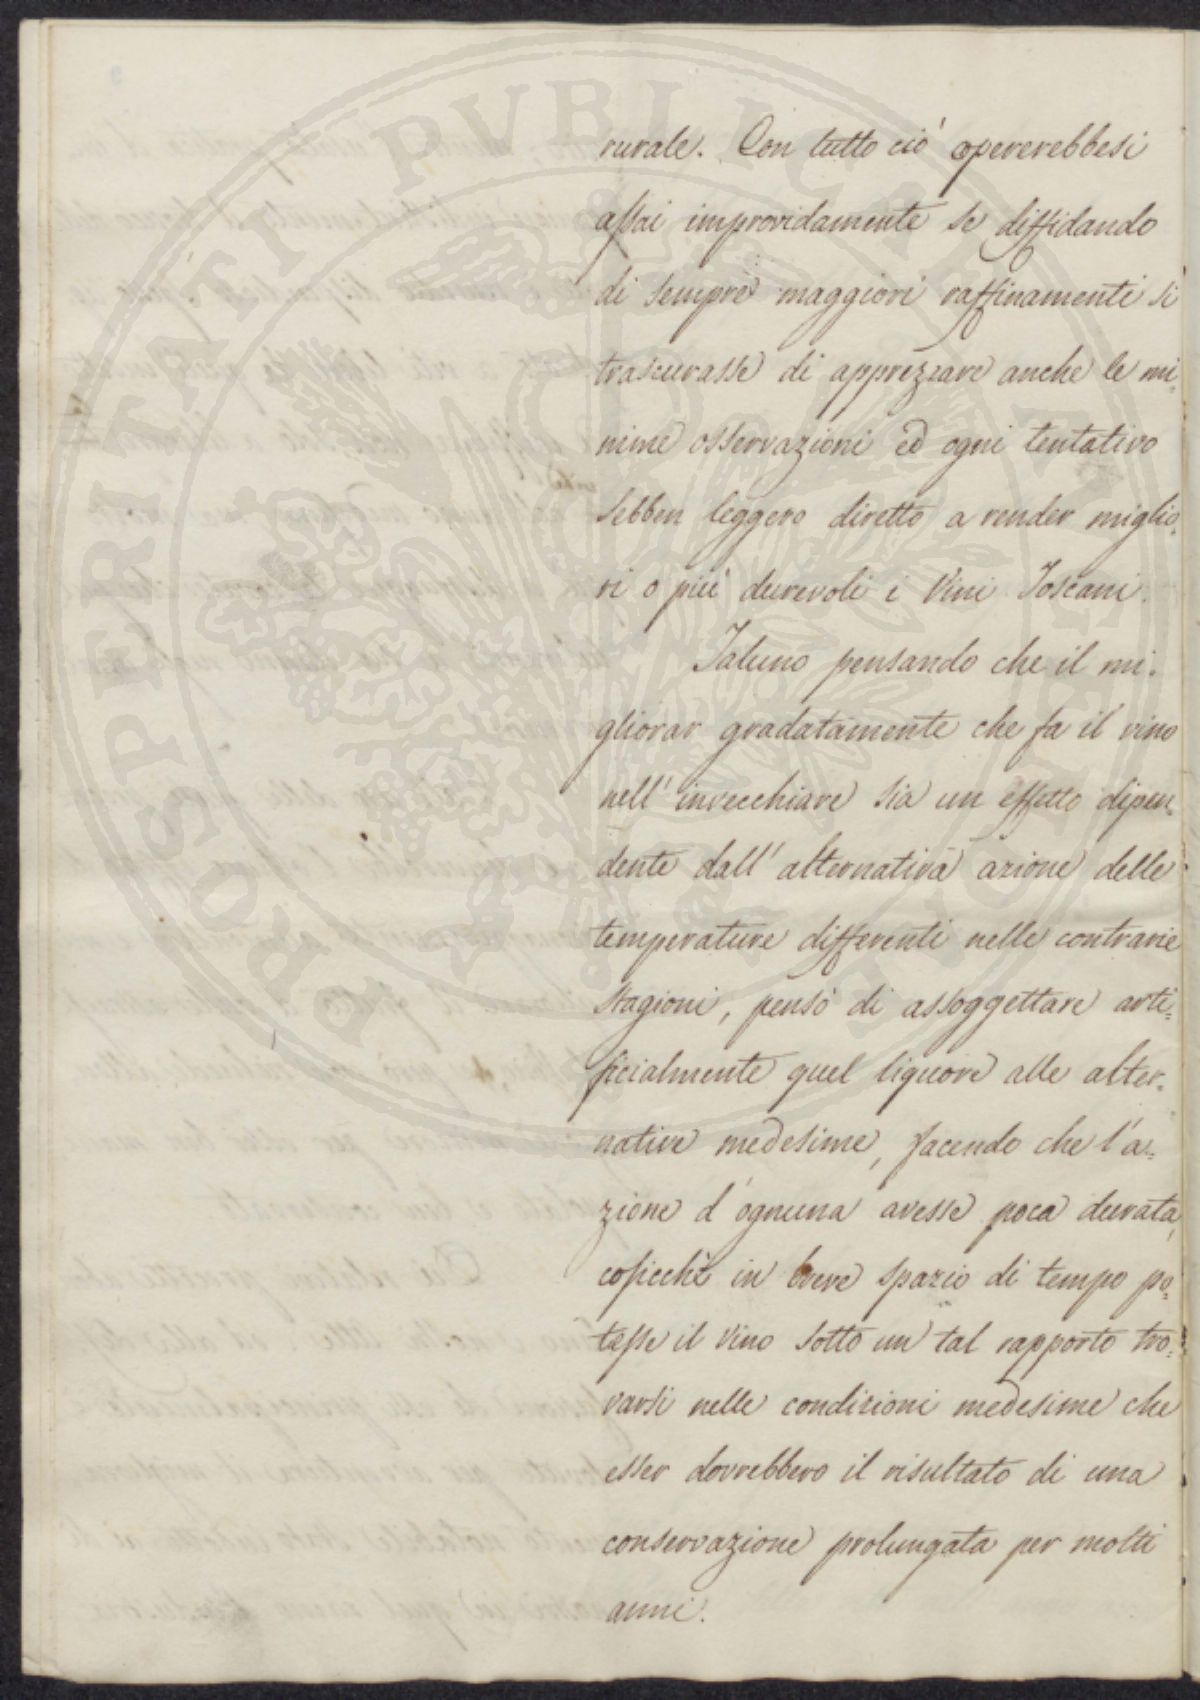 PROSPERITATI PVBLICAE AVGENDAE
rurale. Con tutto ciò opererebbesi
assai improvidamente se diffidando
di sempre maggiori raffinamenti si
trascurasse di apprezzare anche le mi=
nime osservazioni ed ogni tentativo
sebben leggero diretto a render miglio=
ri o più durevoli i Vini Toscani.
Taluno pensando che il mi=
gliorar gradatamente che fa il vino
nell'invecchiare sia un effetto dipen=
dente dall'alternativa azione delle
temperature differenti nelle contrarie
stagioni, pensò di assoggettare arti=
ficialmente quel liquore alle alter=
native medesime, facendo che l'a=
zione d'ognuna avesse poca durata,
cosicchè in breve spazio di tempo po=
tesse il vino sotto un tal rapporto tro=
varsi nelle condizioni medesime che
esser dovrebbero il risultato di una
conservazione prolungata per molti
anni.